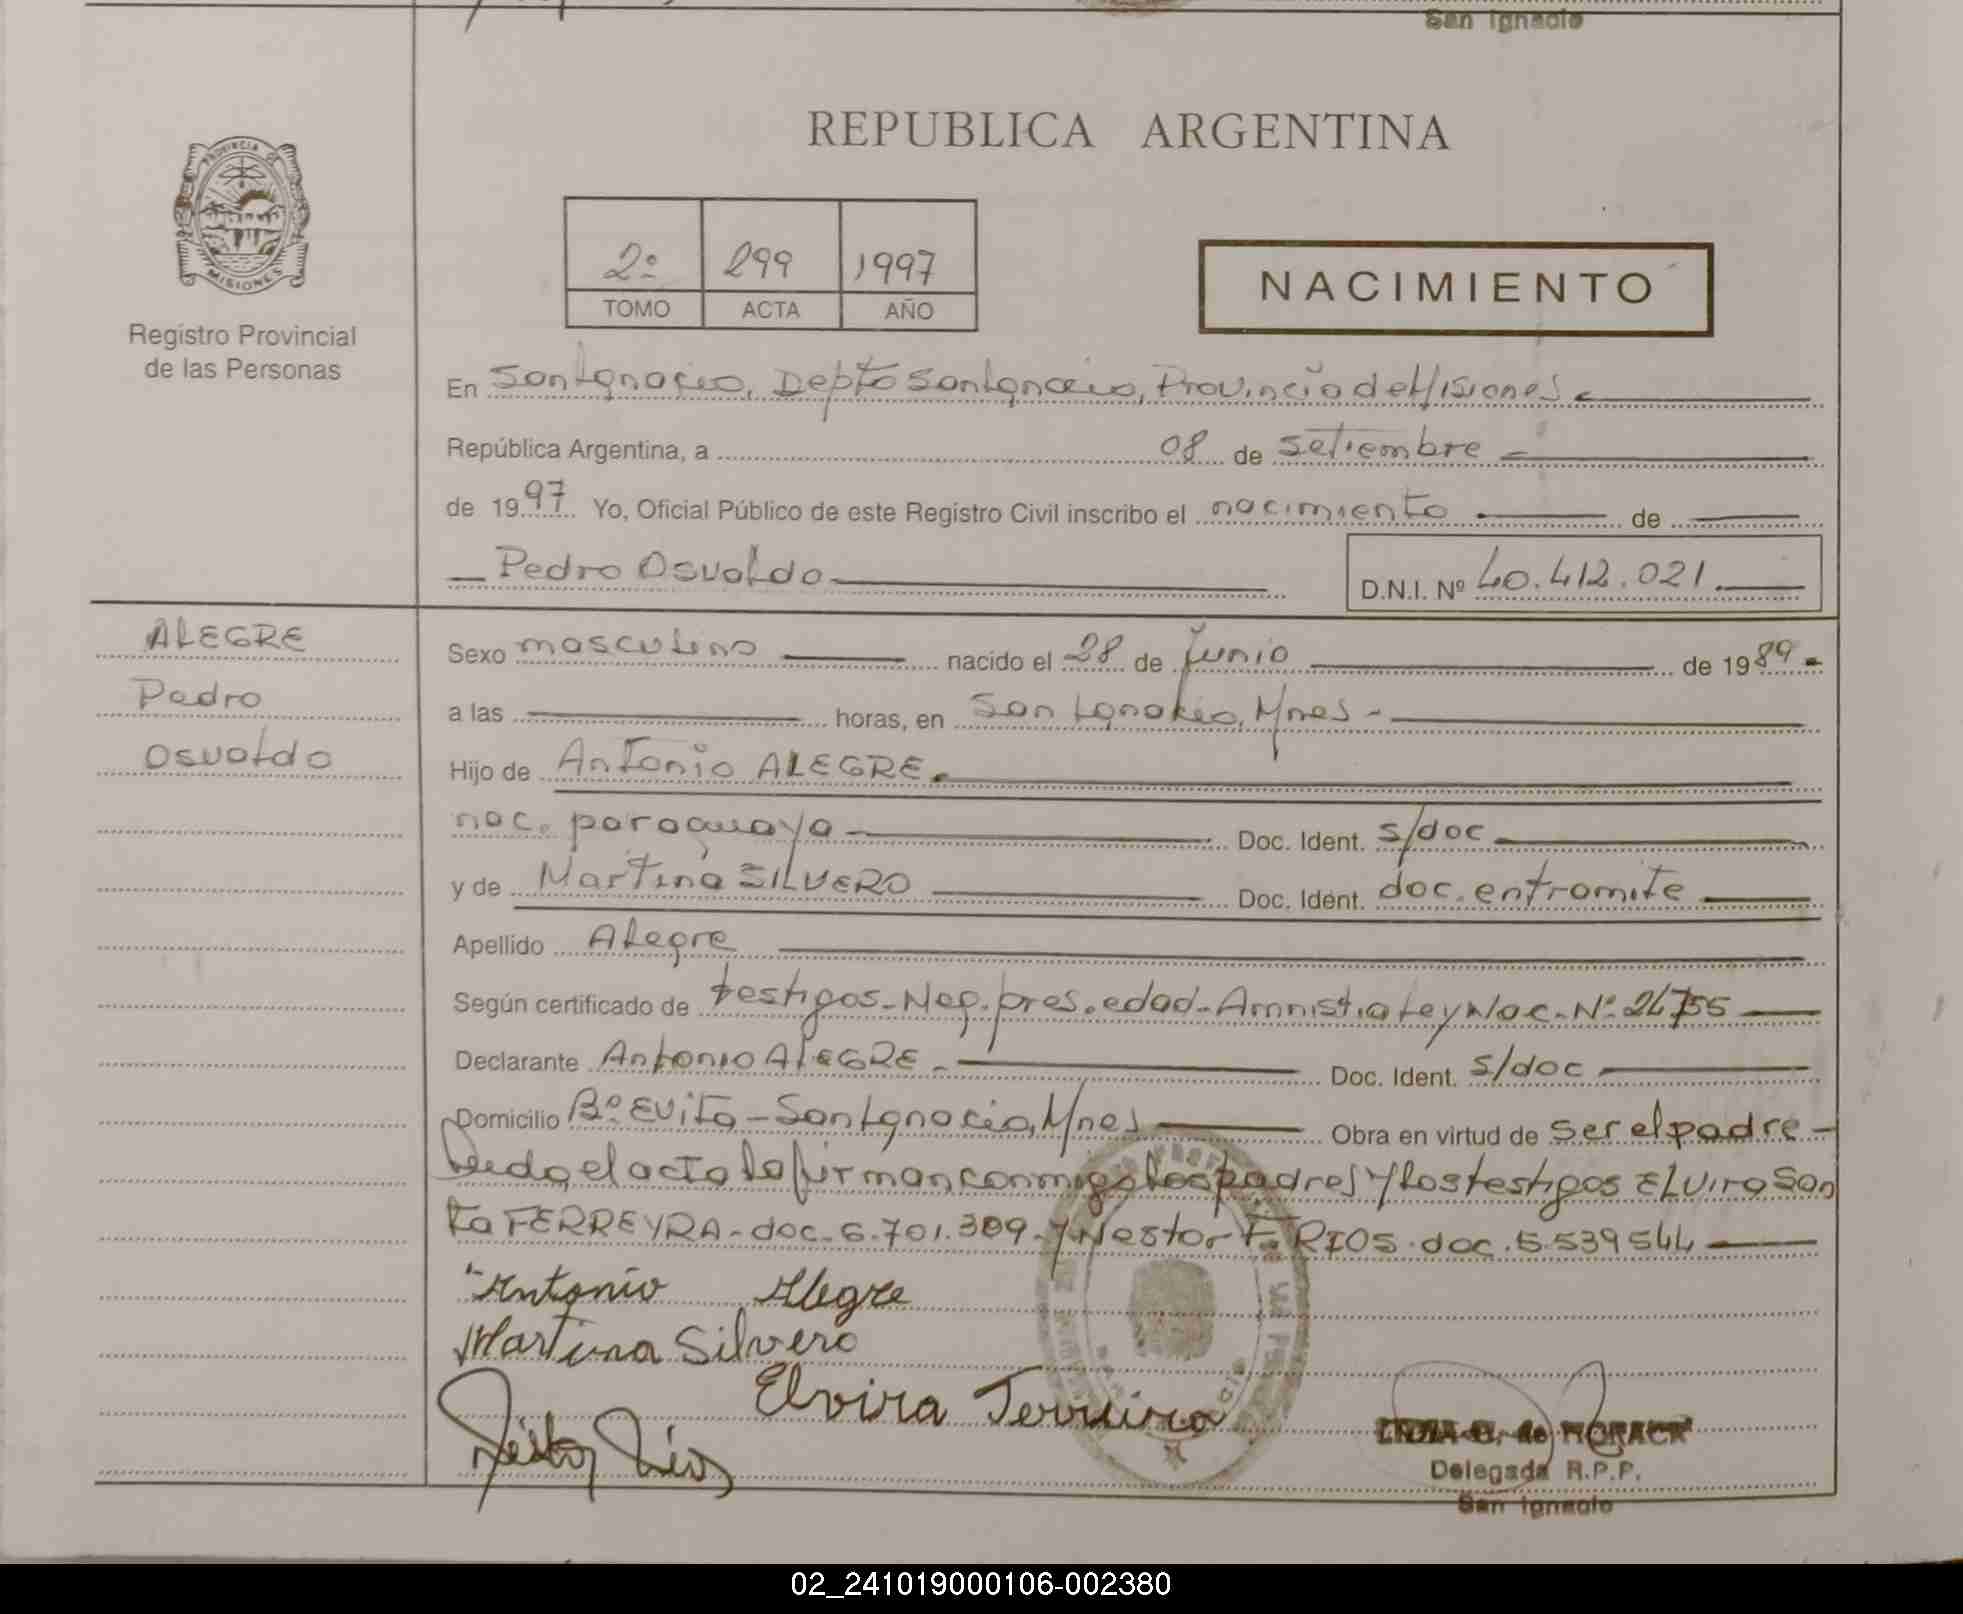 San Ignacio
REPUBLICA ARGENTINA
PROVINCIA DE
MISIONES
Registro Provincial
de las Personas
2º 299 1997
TOMO ACTA AÑO
NACIMIENTO
En San Ignacio, Depto San Ignacio, Provincia de Misiones
República Argentina, a 08 de setiembre
de 1997 Yo, Oficial Público de este Registro Civil inscribo el nacimiento de
Pedro Osvaldo
D.N.I. Nº 40.412.021.
ALEGRE
Pedro
Osvaldo
Sexo masculino nacido el 28 de Junio de 1989
a las horas, en San Ignacio, Mnes-
Hijo de Antonio ALEGRE.
nac. paraguaya Doc. Ident. s/doc
y de Martina SILVERO Doc. Ident. doc. en tramite
Apellido Alegre
Según certificado de testigos-Neg. pres. edad-Amnistia Ley Nac. Nº 24755
Declarante Antonio ALEGRE. Doc. Ident. s/doc
Domicilio Bº Evita-San Ignacio, Mnes Obra en virtud de ser el padre-
Leida el acta la firman conmigo los padres y los testigos ELvira San
ta FERREYRA-doc. 6.701.309-y Nestor F. RIOS. doc. 5.539544
Antonio Alegre
Martina Silvero
Elvira Ferreira
Néstor Ríos
de
Delegada R.P.P.
San Ignacio
02_241019000106-002380